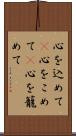 心を込めて
心をこめ
て
心を籠
めて